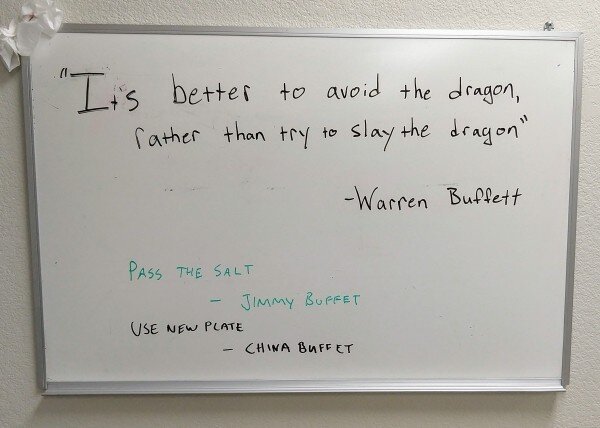 "It's better to avoid the dragon,
rather than try to slay the dragon"
-Warren Buffett
PASS THE SALT
- JIMMY BUFFET
USE NEW PLATE
- CHINA BUFFET